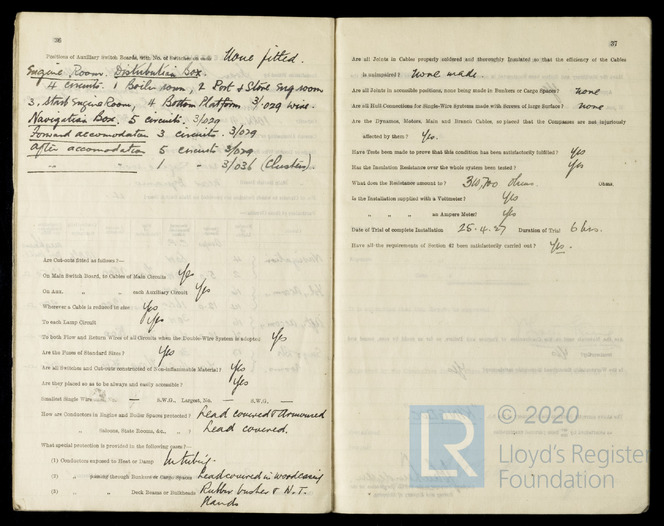 36
Positions of Auxiliary Switch Boards, with No. of Switches on each None fitted.
Engine Room. Distribution Box.
4 circuits. 1 Boiler room, 2 Port & Store Eng room
3, Starb Engine Room, 4 Bottom Platform 3/029 wire.
Navigation Box. 5 circuits, 3/029
Forward accomodation 3 circuits 3/029
After accomodation 5 circuits 3/029
" " 1 " 3/036 (Clusters)
Are Cut-outs fitted as follows?—
On Main Switch Board, to Cables of Main Circuits Yes
On Aux. " " each Auxiliary Circuit Yes
Wherever a Cable is reduced in size Yes
To each Lamp Circuit Yes
To both Flow and Return Wires of all Circuits when the Double-Wire System is adopted Yes
Are the Fuses of Standard Sizes? Yes
Are all Switches and Cut-outs constructed of Non-inflammable Material? Yes
Are they placed so as to be always and easily accessible? Yes
Smallest Single Wire — S.W.G., Largest, No. — S.W.G. —
How are Conductors in Engine and Boiler Spaces protected? Lead covered & Armoured
" " Saloons, State Rooms, &c., " ? Lead covered.
What special protection is provided in the following cases?—
(1) Conductors exposed to Heat or Damp In tubing.
(2) " passing through Bunkers or Cargo Spaces Lead covered in wood casing
(3) " " Deck Beams or Bulkheads Rubber bushes & W.T. Glands
37
Are all Joints in Cables properly soldered and thoroughly Insulated so that the efficiency of the Cables
is unimpaired? None made.
Are all Joints in accessible positions, none being made in Bunkers or Cargo Spaces? none
Are all Hull Connections for Single-Wire Systems made with Screws of large Surface? none
Are the Dynamos, Motors, Main and Branch Cables, so placed that the Compasses are not injuriously
affected by them? Yes.
Have Tests been made to prove that this condition has been satisfactorily fulfilled? Yes
Has the Insulation Resistance over the whole system been tested? Yes
What does the Resistance amount to? ohms. Ohms.
Is the Installation supplied with a Voltmeter? Yes
" " " an Ampere Meter? Yes
Date of Trial of complete Installation 25.4.27 Duration of Trial 6 hrs.
Have all the requirements of Section 42 been satisfactorily carried out? Yes.
© 2020
LR
Lloyd's Register
Foundation